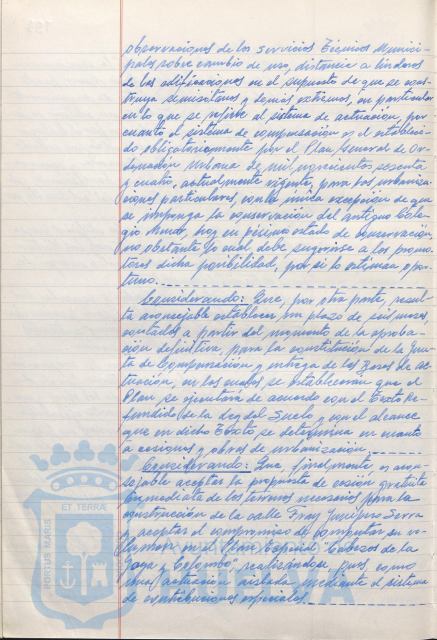 observaciones de los Servicios Técnicos Munici-
pales sobre cambio de uso, distancia a linderos
de las edificaciones en el supuesto de que se cons-
truya semisótanos y demás extremos, en particular
en lo que se refiere al sistema de actuación, por
cuanto el sistema de compensación es el estableci-
do obligatoriamente por el Plan General de Or-
denación Urbana de mil novecientos sesenta
y cuatro, actualmente vigente, para las urbaniza-
ciones particulares, con la única excepción de que
se imponga la conservación del antiguo Cole-
gio Menor, hoy en pésimo estado de conservación,
no obstante lo cual debe sugerirse a los promo-
tores dicha posibilidad, por si lo estiman opor-
tuno.
Considerando: Que, por otra parte, resul-
ta aconsejable establecer un plazo de seis meses,
contados a partir del momento de la aproba-
ción definitiva, para la constitución de la Jun-
ta de Compensación y entrega de las Bases de ac-
tuación, en las cuales se establecerán que el
Plan se ejecutará de acuerdo con el Texto Re-
fundido de la Ley del Suelo y con el alcance
que en dicho Texto se determina en cuanto
a cesiones y obras de urbanización.
Considerando: Que, finalmente, es acon-
sejable aceptar la propuesta de cesión gratuita
inmediata de los terrenos necesarios para la
construcción de la calle Fray Junípero Serra
y aceptar el compromiso de computar su vo-
lumen en el Plan Especial "Cabezos de la
Joya y Colombo", realizándose, pues, como
una actuación aislada mediante el sistema
de contribuciones especiales.
PORTUS MARIS
ET TERRA